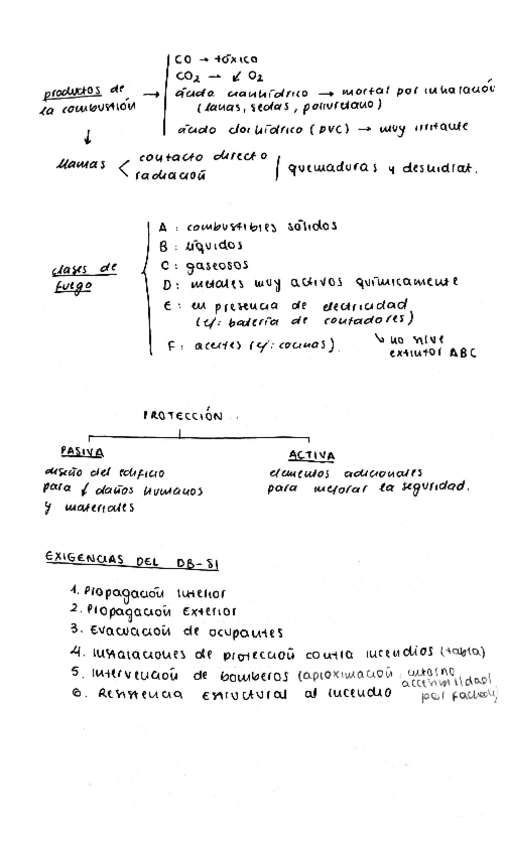 CO → tóxico
CO2 → ↙ O2
productos de → ácido cianhídrico → mortal por inhalación
la combustión (lanas, sedas, poliuretano)
ácido clorhídrico (PVC) → muy irritante
↓
llamas < contacto directo
radiación | quemaduras y deshidrat.
A: combustibles sólidos
B: líquidos
clases de C: gaseosos
fuego D: metales muy activos químicamente
E: en presencia de electricidad
(ej: batería de contadores)
F: aceites (ej: cocinas). ↘ no sirve
extintor ABC
PROTECCIÓN
PASIVA ACTIVA
diseño del edificio elementos adicionales
para ↓ daños humanos para mejorar la seguridad.
y materiales
EXIGENCIAS DEL DB-SI
1. Propagación Interior
2. Propagación Exterior
3. Evacuación de ocupantes
4. Instalaciones de protección contra incendios (tabla)
5. Intervención de bomberos (aproximación, entorno,
accesibilidad
por fachada)
6. Resistencia estructural al incendio